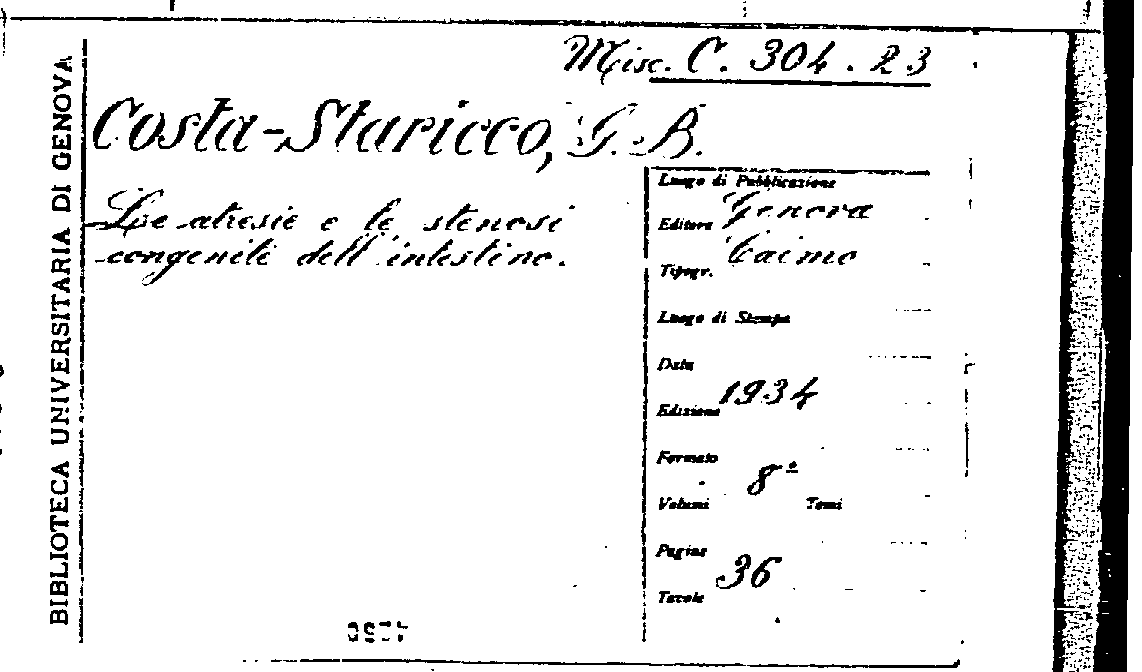 Misc. C. 304.23
BIBLIOTECA UNIVERSITARIA DI GENOVA
Costa-Staricco, G. B.
Le atresie e le stenosi
congenite dell'intestino.
Luogo di Pubblicazione
Genova
Editore
Caimo
Tipogr.
Luogo di Stampa
Data
1934
Edizione
Formato
8º
Volumi Tomi
Pagine
36
Tavole